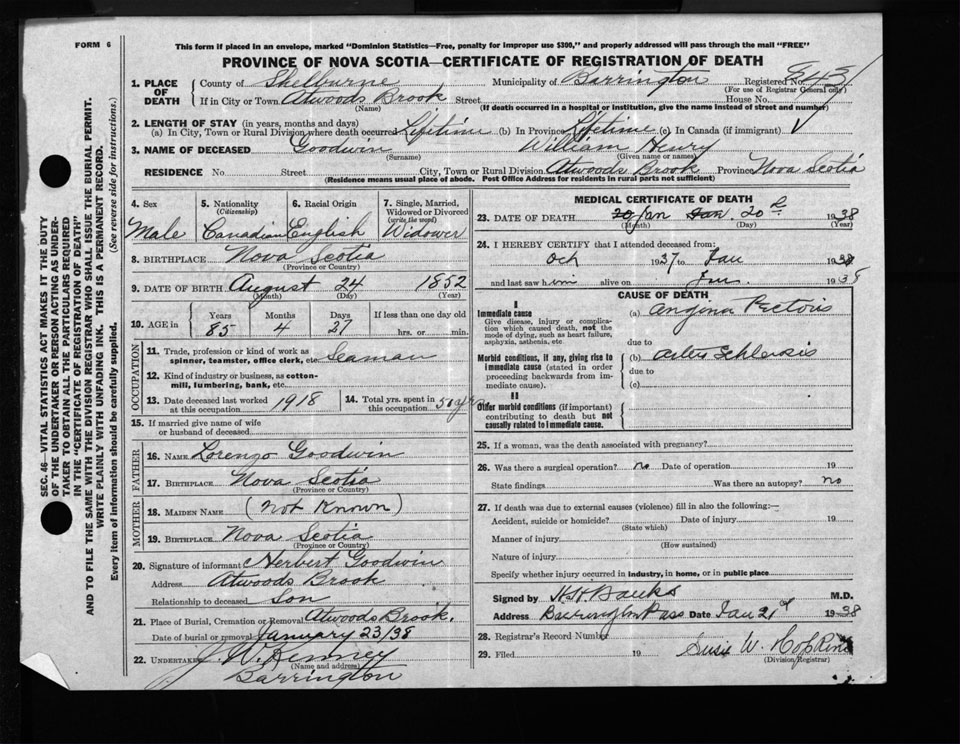 FORM 6
This form if placed in an envelope, marked "Dominion Statistics—Free, penalty for improper use $300," and properly addressed will pass through the mail "FREE"
PROVINCE OF NOVA SCOTIA—CERTIFICATE OF REGISTRATION OF DEATH
1. PLACE OF DEATH County of Shelburne Municipality of Barrington Registered No.
(For use of Registrar General only)
If in City or Town Atwoods Brook Street House No.
(Name) (If death occurred in a hospital or institution, give the name instead of street and number)
2. LENGTH OF STAY (in years, months and days)
(a) In City, Town or Rural Division where death occurred Lifetime (b) In Province Lifetime (c) In Canada (if immigrant)
3. NAME OF DECEASED Goodwin William Henry
(Surname) (Given name or names)
RESIDENCE No. Street City, Town or Rural Division Atwoods Brook Province Nova Scotia
(Residence means usual place of abode. Post Office Address for residents in rural parts not sufficient)
4. Sex 5. Nationality (Citizenship) 6. Racial Origin 7. Single, Married, Widowed or Divorced (write the word)
Male Canadian English Widower
8. BIRTHPLACE Nova Scotia
(Province or Country)
9. DATE OF BIRTH August 24 1852
(Month) (Day) (Year)
10. AGE in Years Months Days If less than one day old
85 4 27 hrs. or min.
OCCUPATION
11. Trade, profession or kind of work as spinner, teamster, office clerk, etc. Seaman
12. Kind of industry or business, as cotton-mill, lumbering, bank, etc.
13. Date deceased last worked at this occupation 1918 14. Total yrs. spent in this occupation 50 yrs
15. If married give name of wife or husband of deceased
FATHER
16. NAME Lorenzo Goodwin
17. BIRTHPLACE Nova Scotia
(Province or Country)
MOTHER
18. MAIDEN NAME (Not Known)
19. BIRTHPLACE Nova Scotia
(Province or Country)
20. Signature of informant Herbert Goodwin
Address Atwoods Brook
Relationship to deceased Son
21. Place of Burial, Cremation or Removal Atwoods Brook.
Date of burial or removal January 23/38
22. UNDERTAKER J. W. Kenney
(Name and address)
Barrington
MEDICAL CERTIFICATE OF DEATH
23. DATE OF DEATH Jan 20 1938
(Month) (Day) (Year)
24. I HEREBY CERTIFY that I attended deceased from:
Oct 1937 to Jan 1938
and last saw him alive on Jan. 1938
CAUSE OF DEATH
I
Immediate cause (a) Angina Pectoris
Give disease, injury or complication which caused death, not the mode of dying, such as heart failure, asphyxia, asthenia, etc.
due to
Morbid conditions, if any, giving rise to immediate cause (stated in order proceeding backwards from immediate cause). (b)
due to
(c)
II
Other morbid conditions (if important) contributing to death but not causally related to immediate cause.
25. If a woman, was the death associated with pregnancy?
26. Was there a surgical operation? no Date of operation 19
State findings Was there an autopsy? no
27. If death was due to external causes (violence) fill in also the following:—
Accident, suicide or homicide? Date of injury 19
(State which)
Manner of injury
(How sustained)
Nature of injury
Specify whether injury occurred in industry, in home, or in public place
Signed by H.H. Banks M.D.
Address Barrington Pass Date Jan 21st 1938
28. Registrar's Record Number
29. Filed 19 Susie W. Hopkins
(Division Registrar)
SEC. 46—VITAL STATISTICS ACT MAKES IT THE DUTY OF THE UNDERTAKER OR PERSON ACTING AS UNDERTAKER TO OBTAIN ALL THE PARTICULARS REQUIRED IN THE "CERTIFICATE OF REGISTRATION OF DEATH" AND TO FILE THE SAME WITH THE DIVISION REGISTRAR WHO SHALL ISSUE THE BURIAL PERMIT.
WRITE PLAINLY WITH UNFADING INK. THIS IS A PERMANENT RECORD.
Every item of information should be carefully supplied. (See reverse side for instructions.)